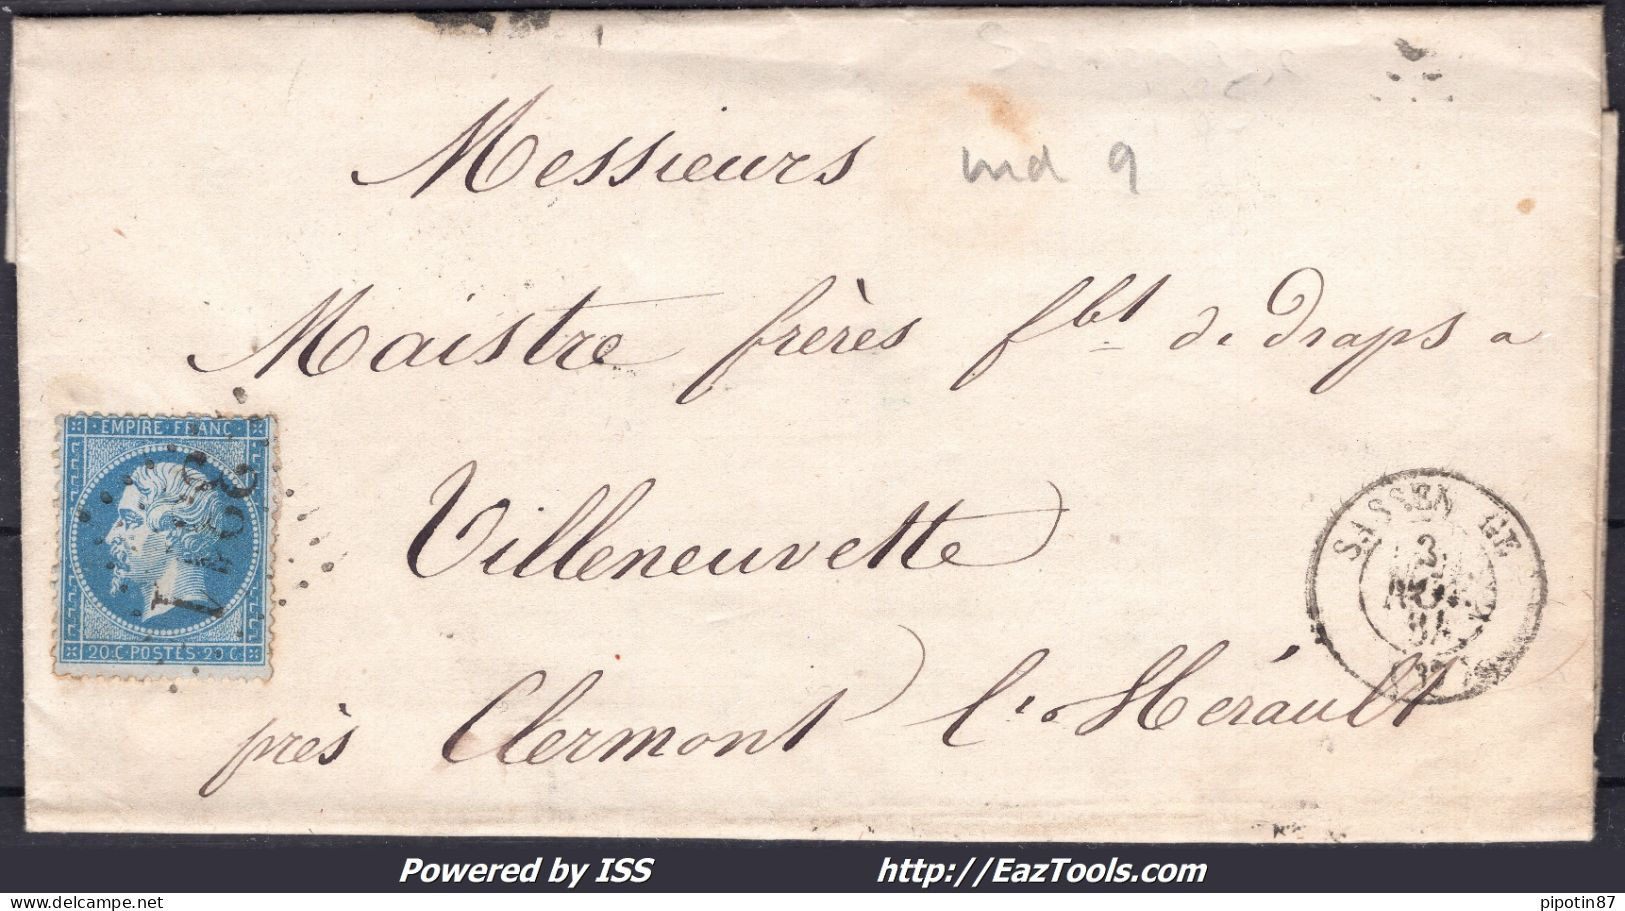 Messieurs
ind 9
Maistre frères fbt de draps a
EMPIRE FRANC
Villeneuvette
SASSEN GE
3
NOV.
20 C POSTES 20 C
près Clermont l'Hérault
Powered by ISS http://EazTools.com
pipotin87